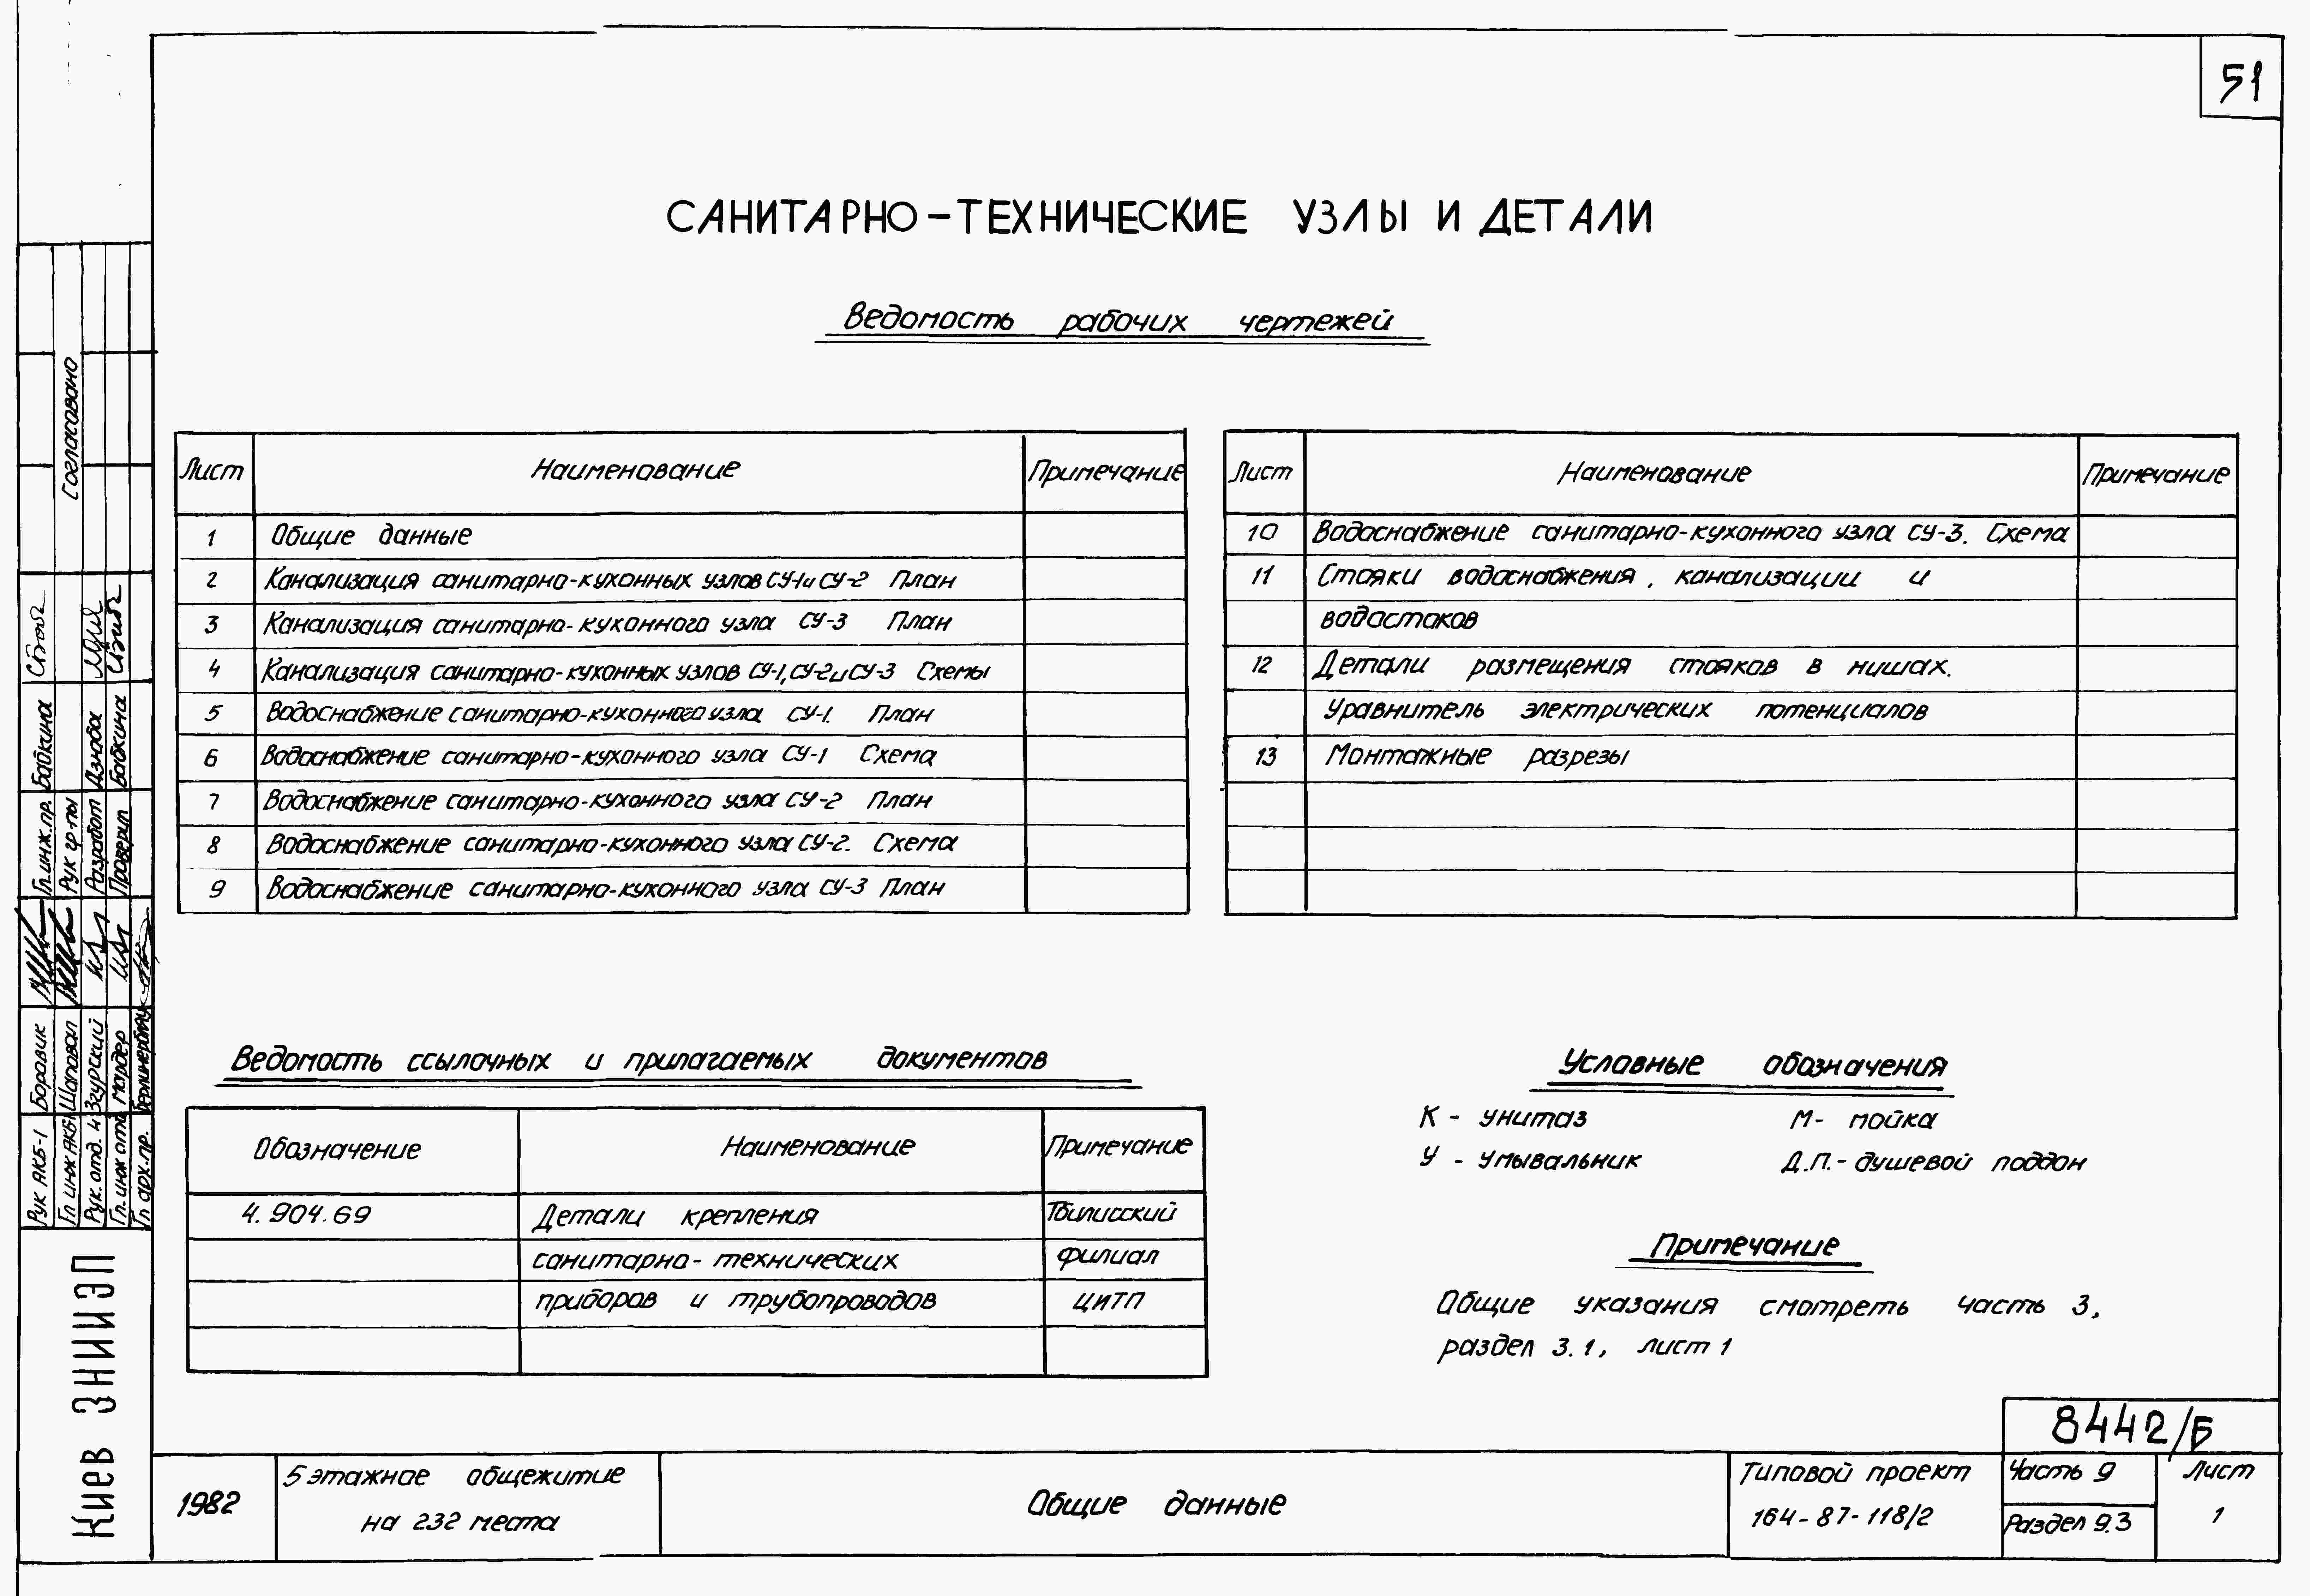 51
САНИТАРНО-ТЕХНИЧЕСКИЕ УЗЛЫ И ДЕТАЛИ
Ведомость рабочих чертежей
Лист Наименование Примечание
1 Общие данные
2 Канализация санитарно-кухонных узлов СУ-1 и СУ-2 План
3 Канализация санитарно-кухонного узла СУ-3 План
4 Канализация санитарно-кухонных узлов СУ-1, СУ-2 и СУ-3 Схемы
5 Водоснабжение санитарно-кухонного узла СУ-1. План
6 Водоснабжение санитарно-кухонного узла СУ-1 Схема
7 Водоснабжение санитарно-кухонного узла СУ-2 План
8 Водоснабжение санитарно-кухонного узла СУ-2. Схема
9 Водоснабжение санитарно-кухонного узла СУ-3 План
Лист Наименование Примечание
10 Водоснабжение санитарно-кухонного узла СУ-3. Схема
11 Стояки водоснабжения, канализации и
водостоков
12 Детали размещения стояков в нишах.
Уравнитель электрических потенциалов
13 Монтажные разрезы
Ведомость ссылочных и прилагаемых документов
Обозначение Наименование Примечание
4.904.69 Детали крепления Тбилисский
санитарно-технических филиал
приборов и трубопроводов ЦИТП
Условные обозначения
К - унитаз М - мойка
У - умывальник Д.П. - душевой поддон
Примечание
Общие указания смотреть часть 3,
раздел 3.1, лист 1
8442/Б
1982
5 этажное общежитие
на 232 места
Общие данные
Типовой проект
164-87-118/2
Часть 9
Раздел 9.3
Лист
1
Согласовано
Гл.инж.пр. Бабкина
Рук гр-пы
Разработ Дзюба
Проверил Бабкина
Рук АКБ-1 Боровик
Гл инж АКБ-1 Шаповал
Рук.отд. 4 Згурский
Гл.инж отд Мардер
Гл арх.пр.
Киев ЗНИИЭП